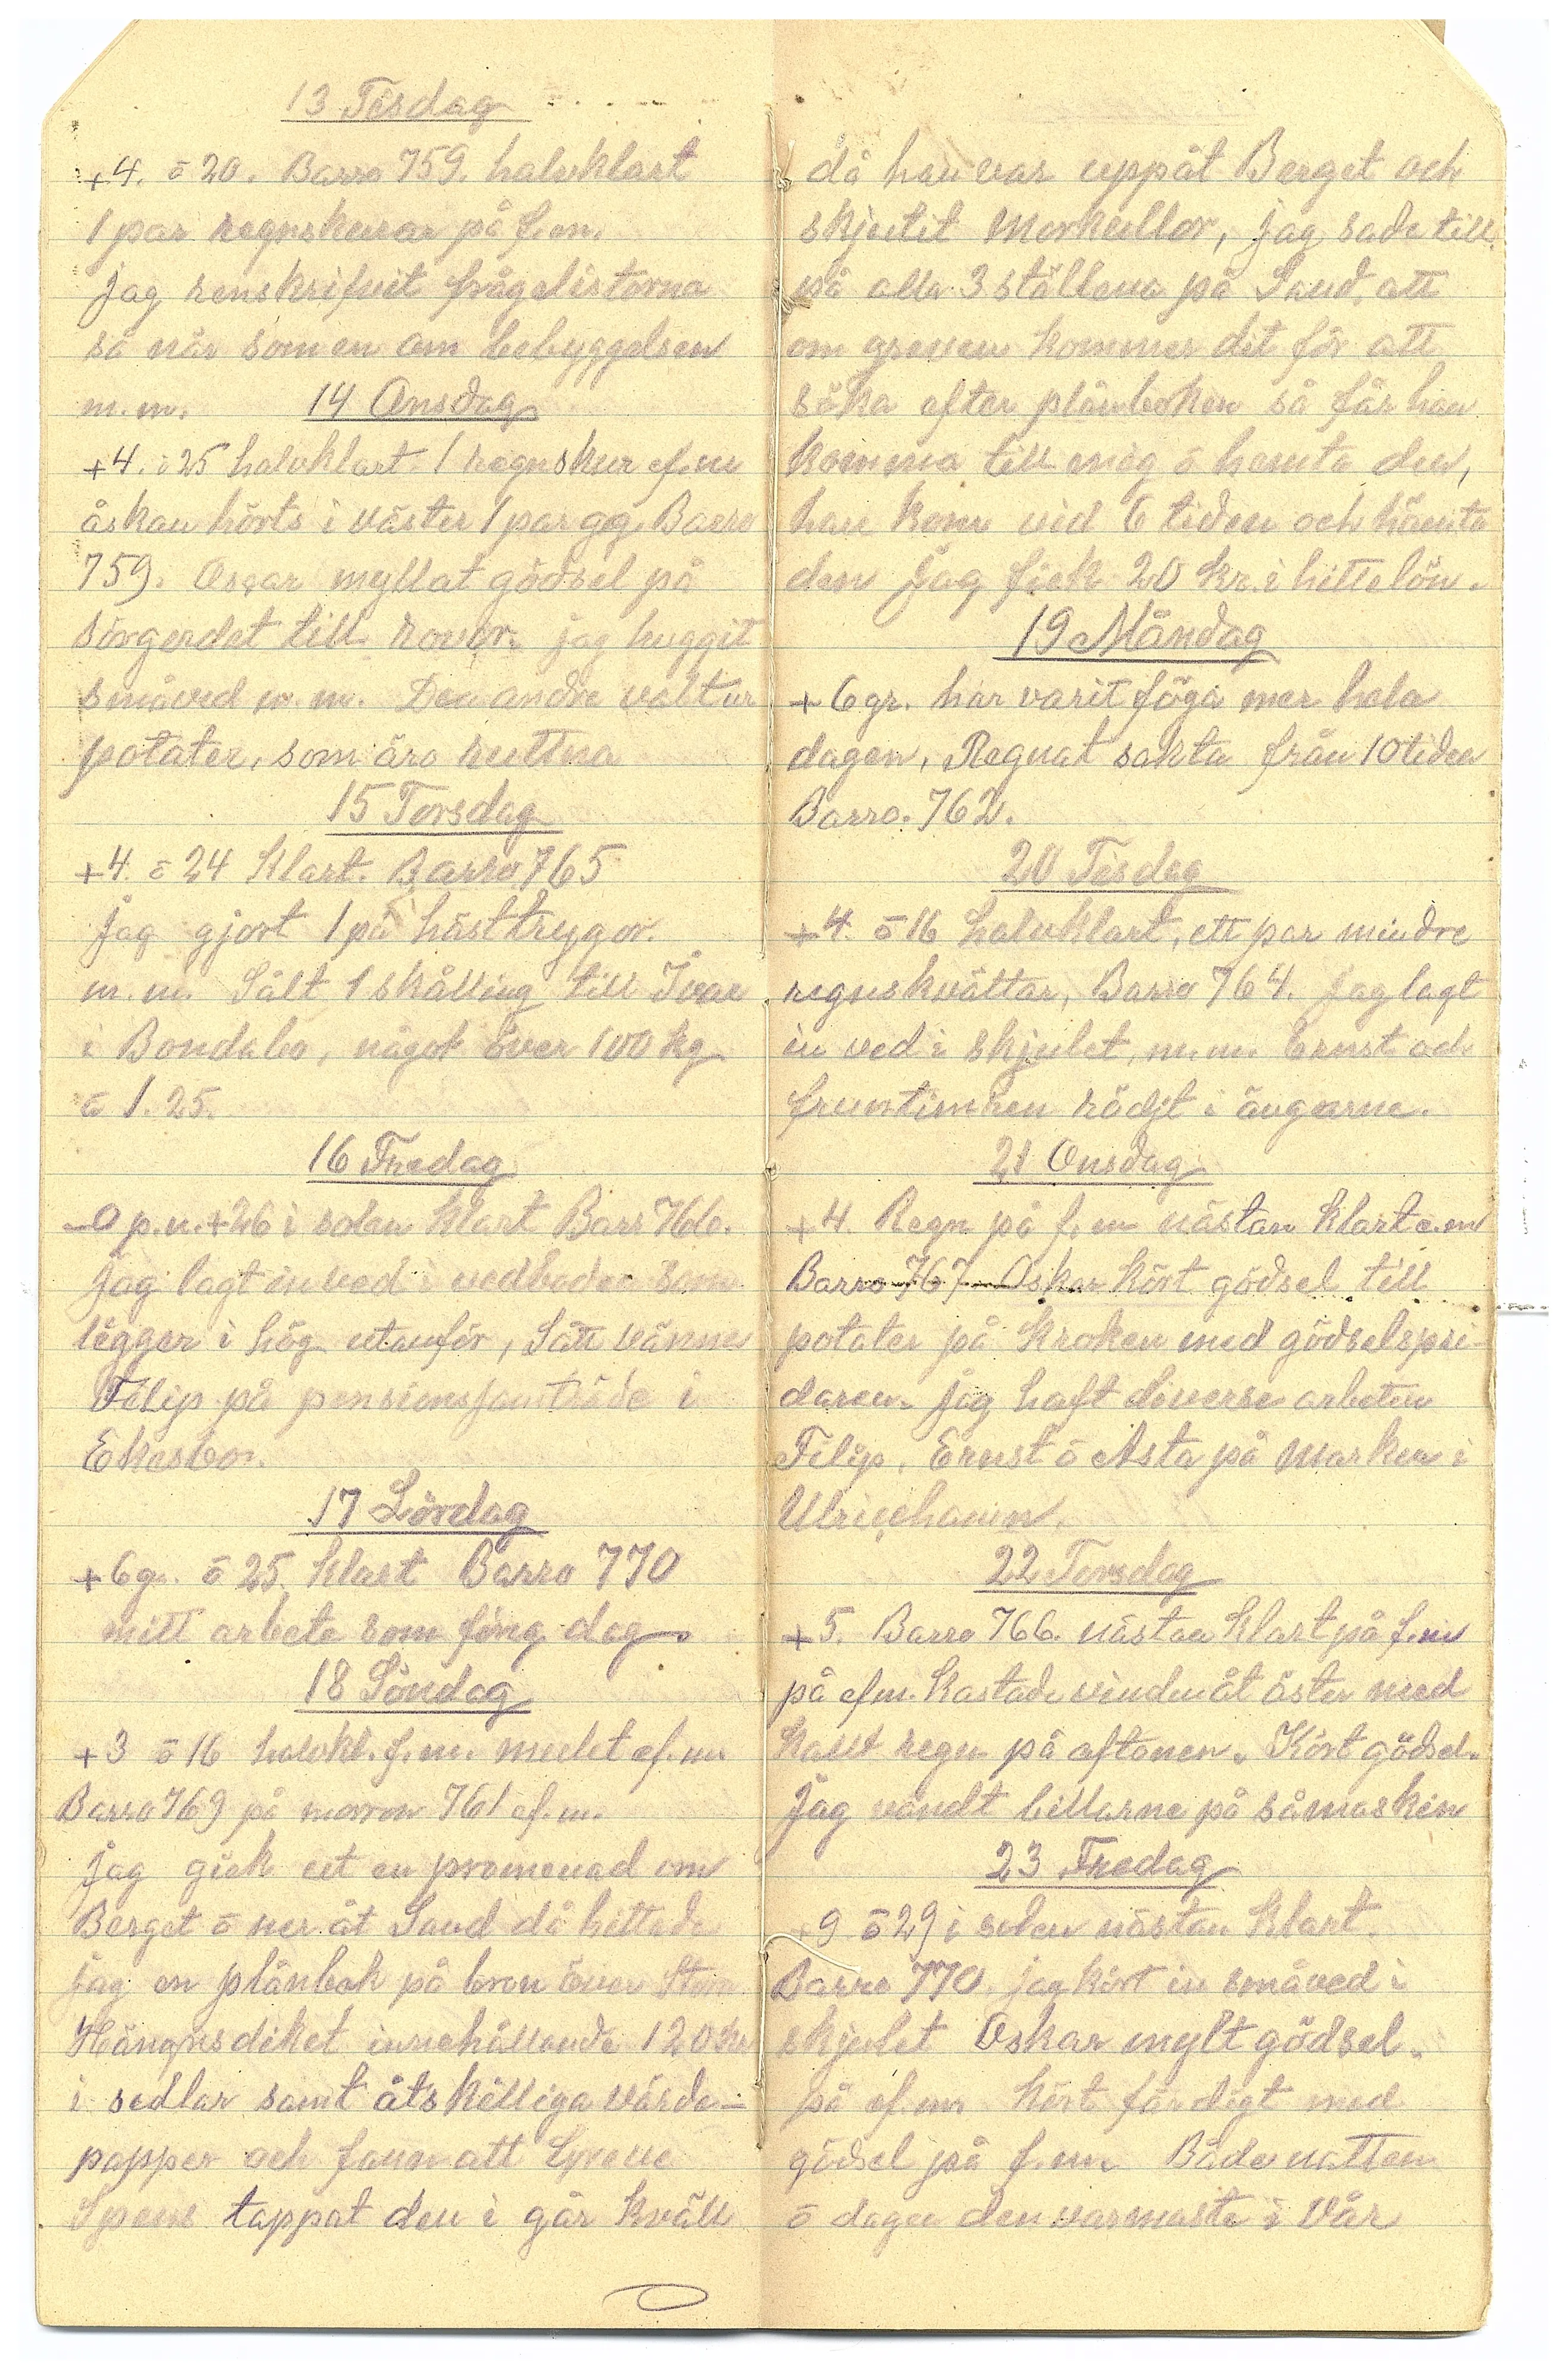 13 Tisdag
+4. ō 20. Barro 759. halvklart
1 par regnskurar på f.m.
jag renskrifvit frågelistorna
så når som en om bebyggelsen
m.m.
14 Onsdag
+4. ō 25 halvklart. 1 regnskur ef.m
åskan hörts i väster 1 par gg. Barro
759. Oscar myllat gödsel på
sörgerdet till rovor. jag huggit
småved m.m. De andre valt ur
potater, som äro ruttna
15 Torsdag
+4. ō 24 Klart. Barro 765
Jag gjort 1 på hästtrygor.
m.m. Sålt 1 skålling till Ivar
i Bondabo, något över 100 kg
ō 1.25.
16 Fredag
-0 p.n. +26 i solen Klart Barr 766.
Jag lagt in ved i vedboden som
ligger i hög utanför, Sått vännes
Filip på pensionsjamträde i
Ekasbo.
17 Lördag
+6 gr. ō 25. Klart Barro 770
mitt arbete som föreg dag.
18 Söndag
+3 ō 16 halvkl. f.m. mulet ef.m.
Barro 769 på morron 761 ef.m.
Jag gick ut en promenad om
Berget ō ner åt Sand då hittade
jag en plånbok på bron över Stom
Hängnsdiket innehållande 120 kr
i sedlar samt åtskilliga värde-
papper och fann att Greve
Spens tappat den i går kväll
då han var uppåt Berget och
skjutit Morkullor, jag sade till
på alla 3 ställena på Sand, att
om greven kommer dit för att
söka efter plånboken så får han
komma till mig ō hemta den,
han kom vid 6 tiden och hämta
den Jag fick 20 kr. i hittelön.
19 Måndag
+6 gr. har varit föga mer hela
dagen, Regnat sakta från 10 tiden
Barro. 762.
20 Tisdag
+4. ō 16 halvklart, ett par mindre
regnskvättar, Barro 764. Jag lagt
in ved i skjulet, m.m. Ernst och
fruntimren rödjt i ängarne.
21 Onsdag
+4. Regn på f.m nästan Klart e.m
Barro 767 Oskar Kört gödsel till
potater på Kroken med gödselspri-
daren. Jag haft diverse arbeten
Filip, Ernst ō Asta på Marken i
Ulricehamn.
22 Torsdag
+5. Barro 766. nästan Klart på f.m
på ef.m. Kastade vinden åt öster med
Kallt regn på aftonen. Kört gödsel.
Jag vändt billarne på såmaskin
23 Fredag
+9 ō 29 i solen nästan Klart.
Barro 770. jag kört in småved i
skjulet Oskar mylt gödsel.
på ef.m. Kört färdigt med
gödsel på f.m. Både natten
ō dagen den varmaste i Vår